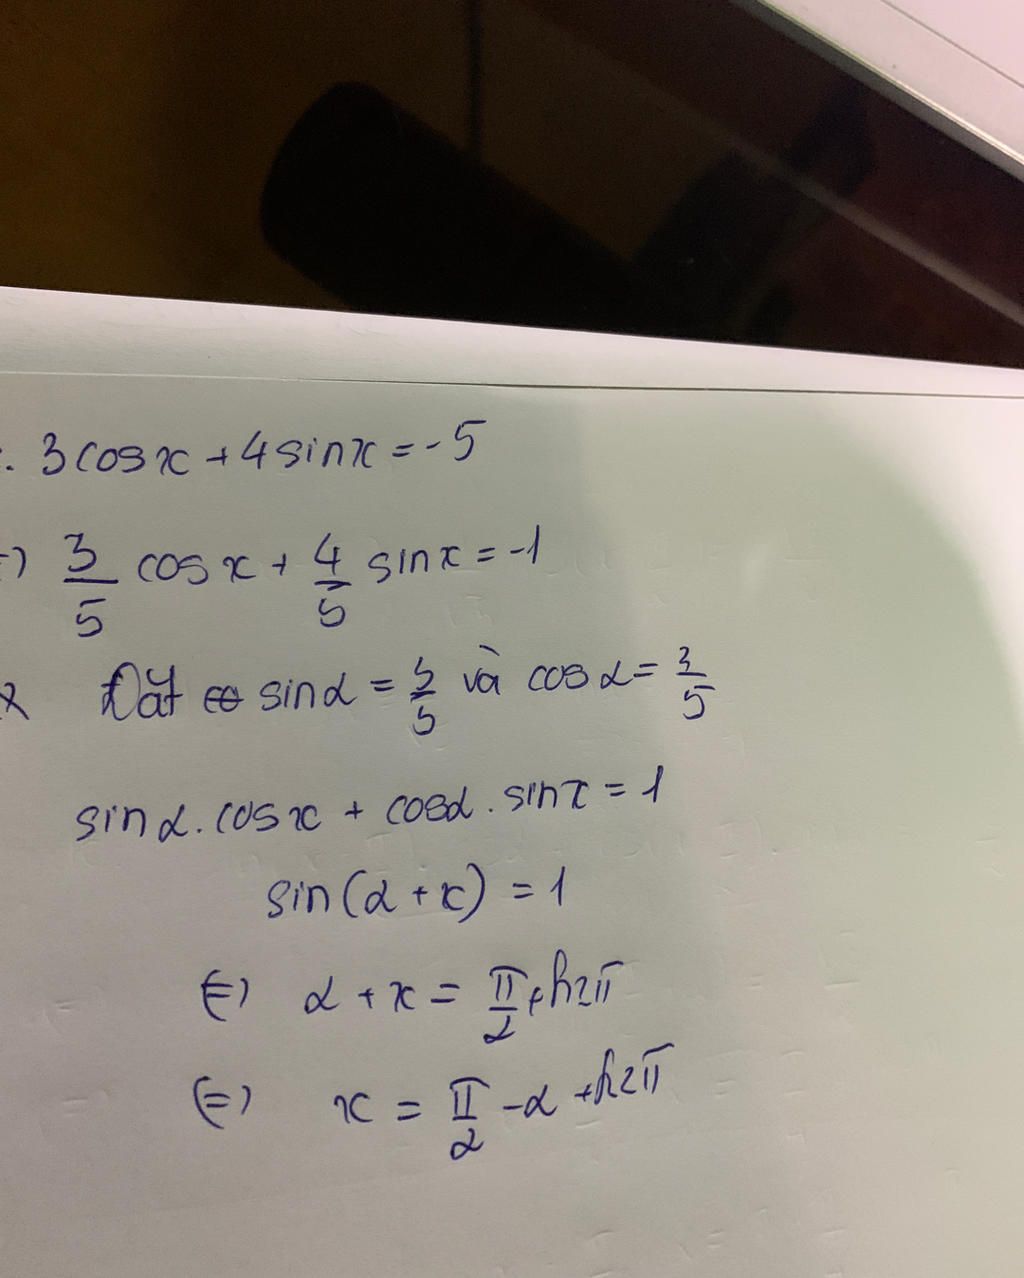 . 3cosx + 4sinx = -5
=) 3/5 cosx + 4/5 sinx = -1
Đặt sinα = 3/5 và cosα = 3/5
sinα.cosx + cosα.sinx = 1
sin(α + x) = 1
(=) α + x = π/2 + k2π
(=) x = π/2 - α + k2π